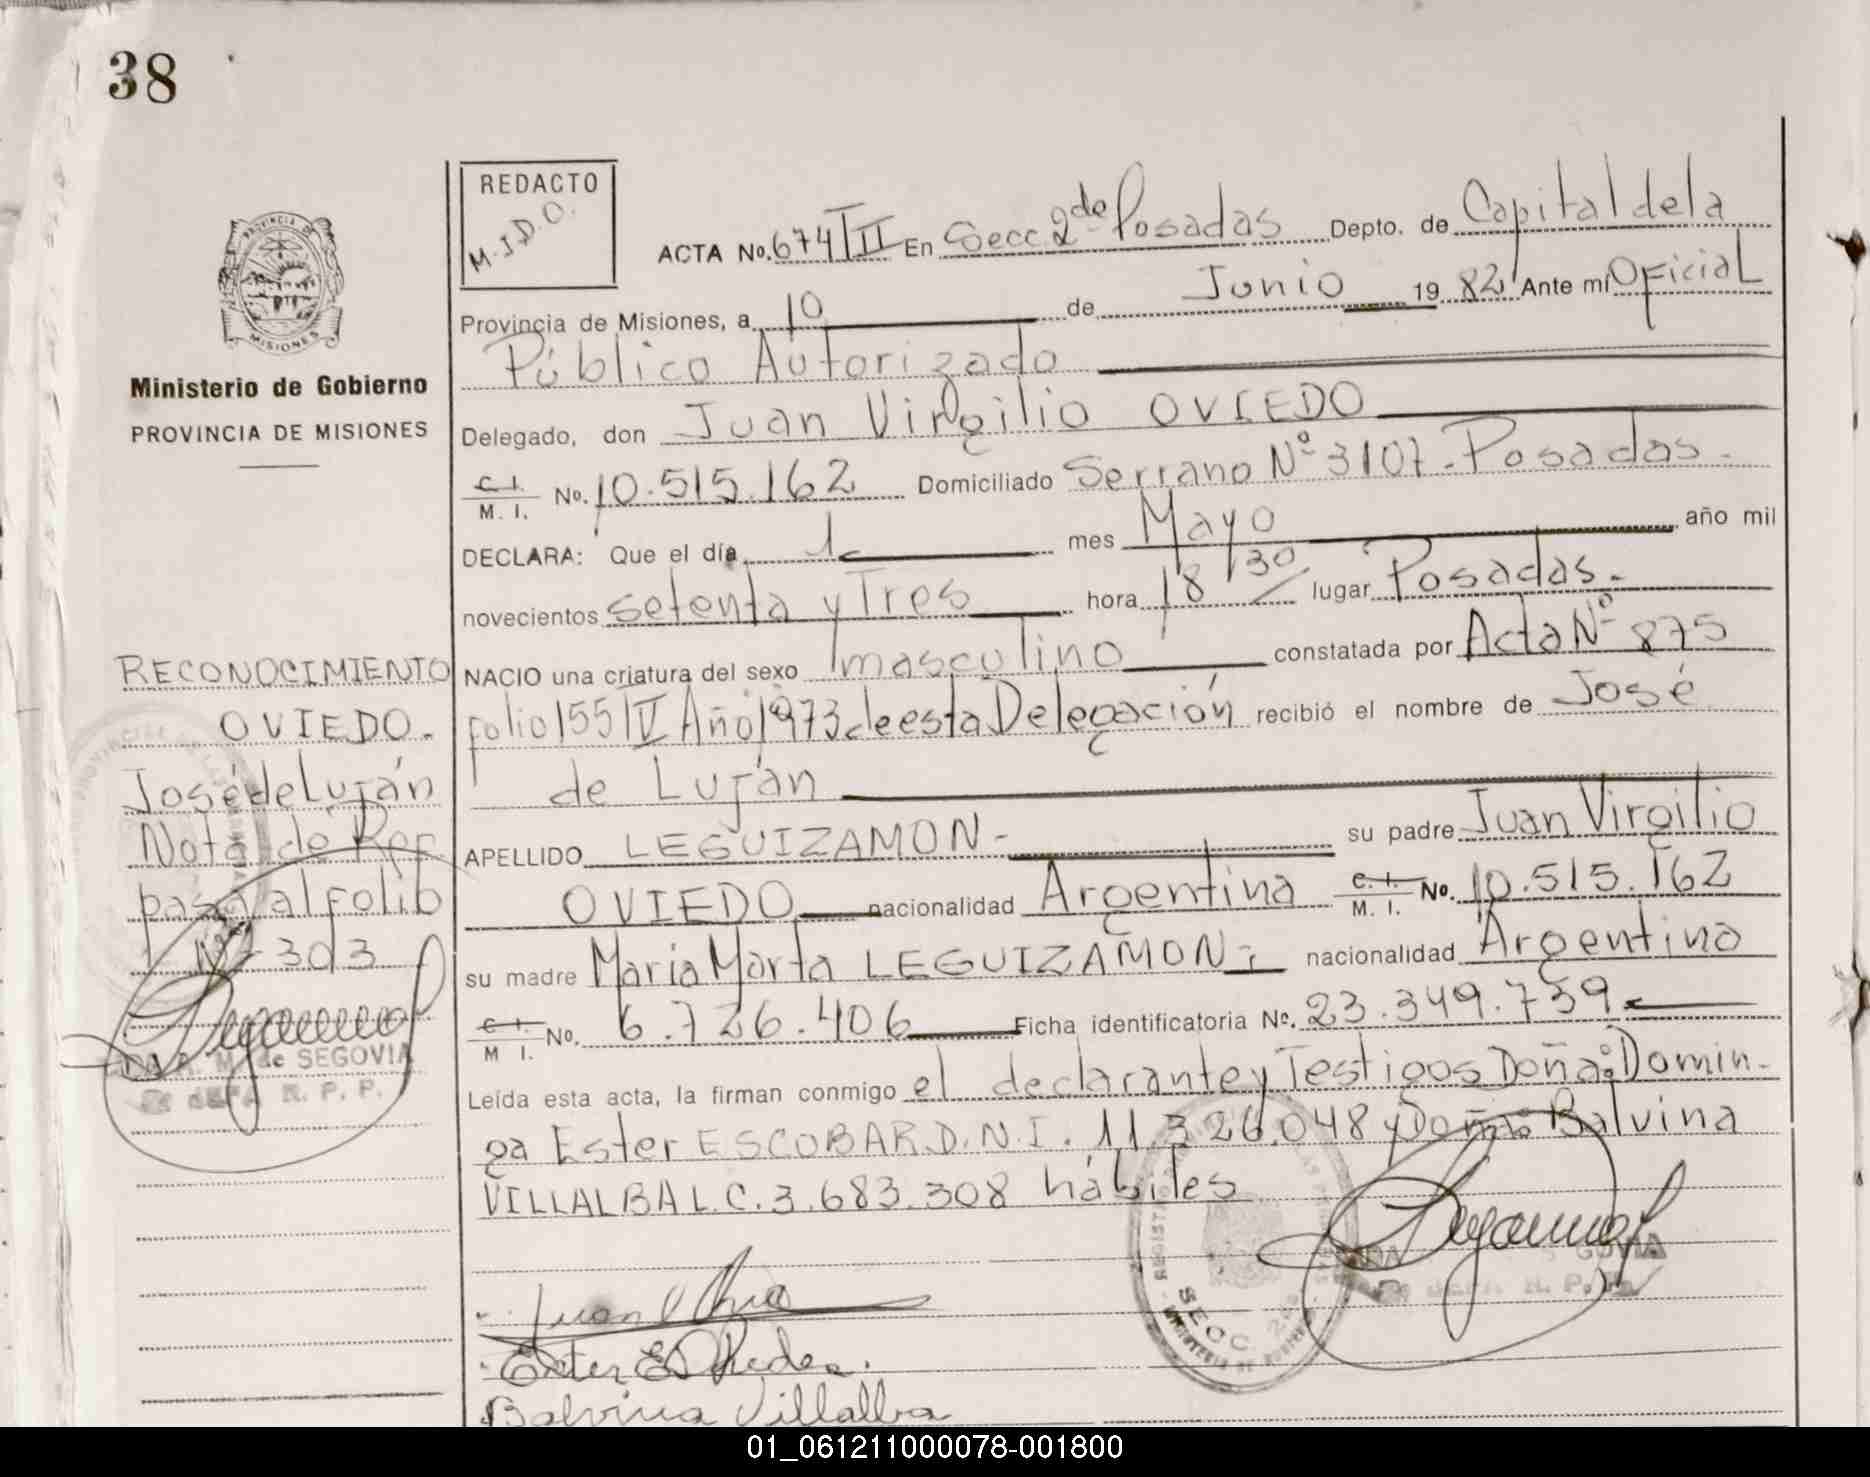 38
REDACTO
M.J.D.O.
PROVINCIA
MISIONES
Ministerio de Gobierno
PROVINCIA DE MISIONES
ACTA No. 674/II En Secc. 2da de Posadas Depto. de Capital de la
Provincia de Misiones, a 10 de Junio 19 82 Ante mí Oficial
Público Autorizado
Delegado, don Juan Virgilio OVIEDO
C. I. / M. I. No. 10.515.162 Domiciliado Serrano Nº 3107. Posadas.
DECLARA: Que el día 1 mes Mayo año mil
novecientos setenta y Tres hora 18/30 lugar Posadas.
NACIO una criatura del sexo masculino constatada por Acta Nº 875
folio 155/IV Año 1973 de esta Delegación recibió el nombre de José
de Luján
APELLIDO LEGUIZAMON- su padre Juan Virgilio
OVIEDO nacionalidad Argentina C. I. / M. I. No. 10.515.162
su madre Maria Marta LEGUIZAMON- nacionalidad Argentina
C. I. / M I. No. 6.726.406 Ficha identificatoria No. 23.349.759
Leída esta acta, la firman conmigo el declarante y Testigos Doña: Domin-
ga Ester ESCOBAR D.N.I. 11.326.048 y Doña: Balvina
VILLALBA L.C. 3.683.308 hábiles
RECONOCIMIENTO
OVIEDO.
José de Luján
Nota de Ref
pasa al folio
Nº 303
M. de SEGOVIA
JEFA R. P. P.
SECC 2da
Balvina Villalba
01_061211000078-001800